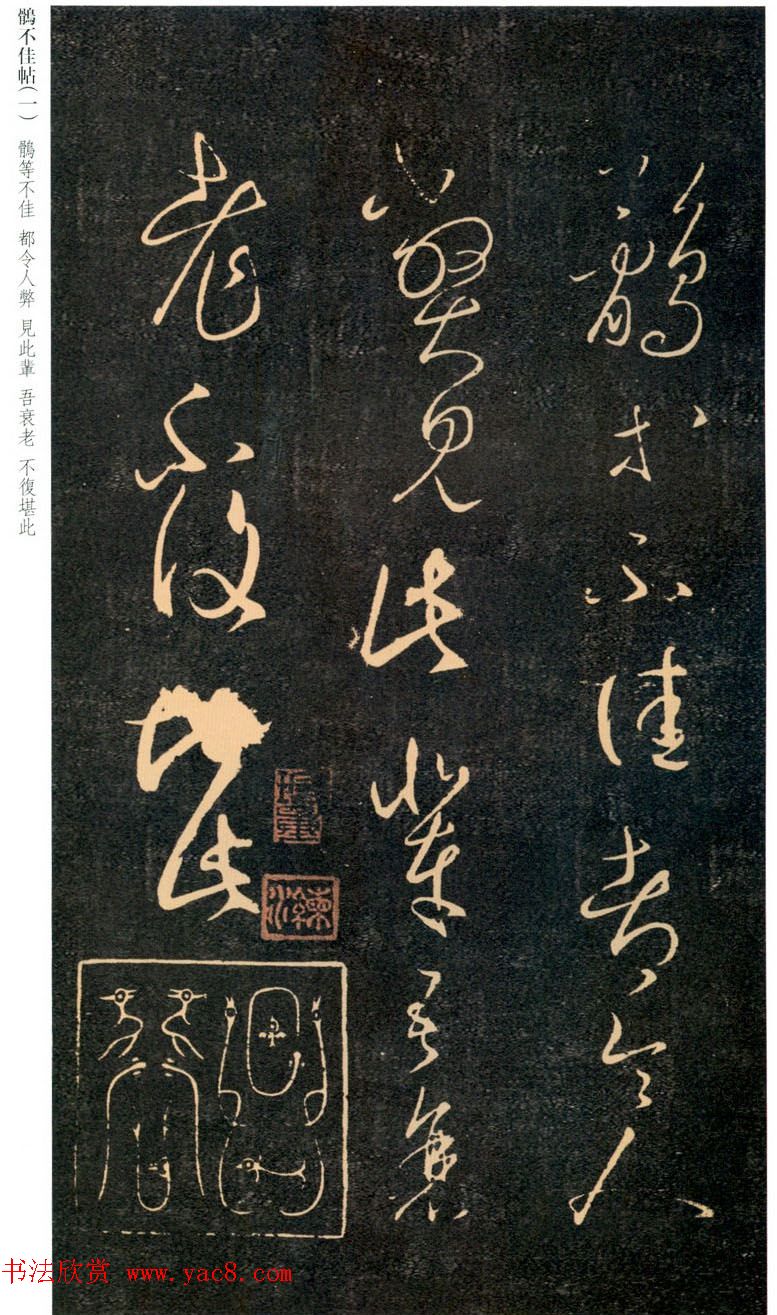 鶻不佳帖(一) 鶻等不佳 都令人弊 見此輩 吾衰老 不復堪此
鶻等不佳都令人
弊見此輩吾衰
老不復堪此
书法欣赏 www.yac8.com